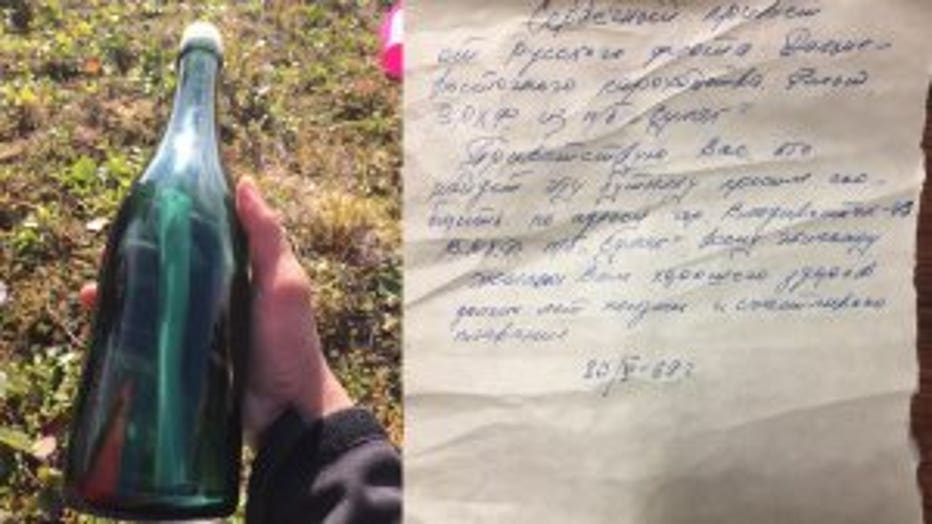 Сердечный привет
от Русского флота Дальне-
восточного пароходства. Флот
ВОКФ из п/б Сулак"
Приветствую Вас кто
найдет эту бутылку просим сооб-
щить по адресу гор. Владивосток-43
ВОКФ п/б. Сулак" всему экипажу
желаем Вам хорошего здоров
долгих лет жизни и счастливого
плавания
20/VI-69г